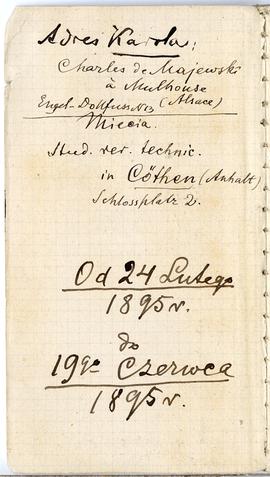 Adres Karola:
Charles de Majewski
à Mulhouse
Engel-Dollfuss No 13 (Alsace)
Miecia.
Stud. rer. technic.
in Cöthen (Anhalt)
Schlossplatz 2.
Od 24 Lutego
1895 r.
do
19go Czerwca
1895 r.